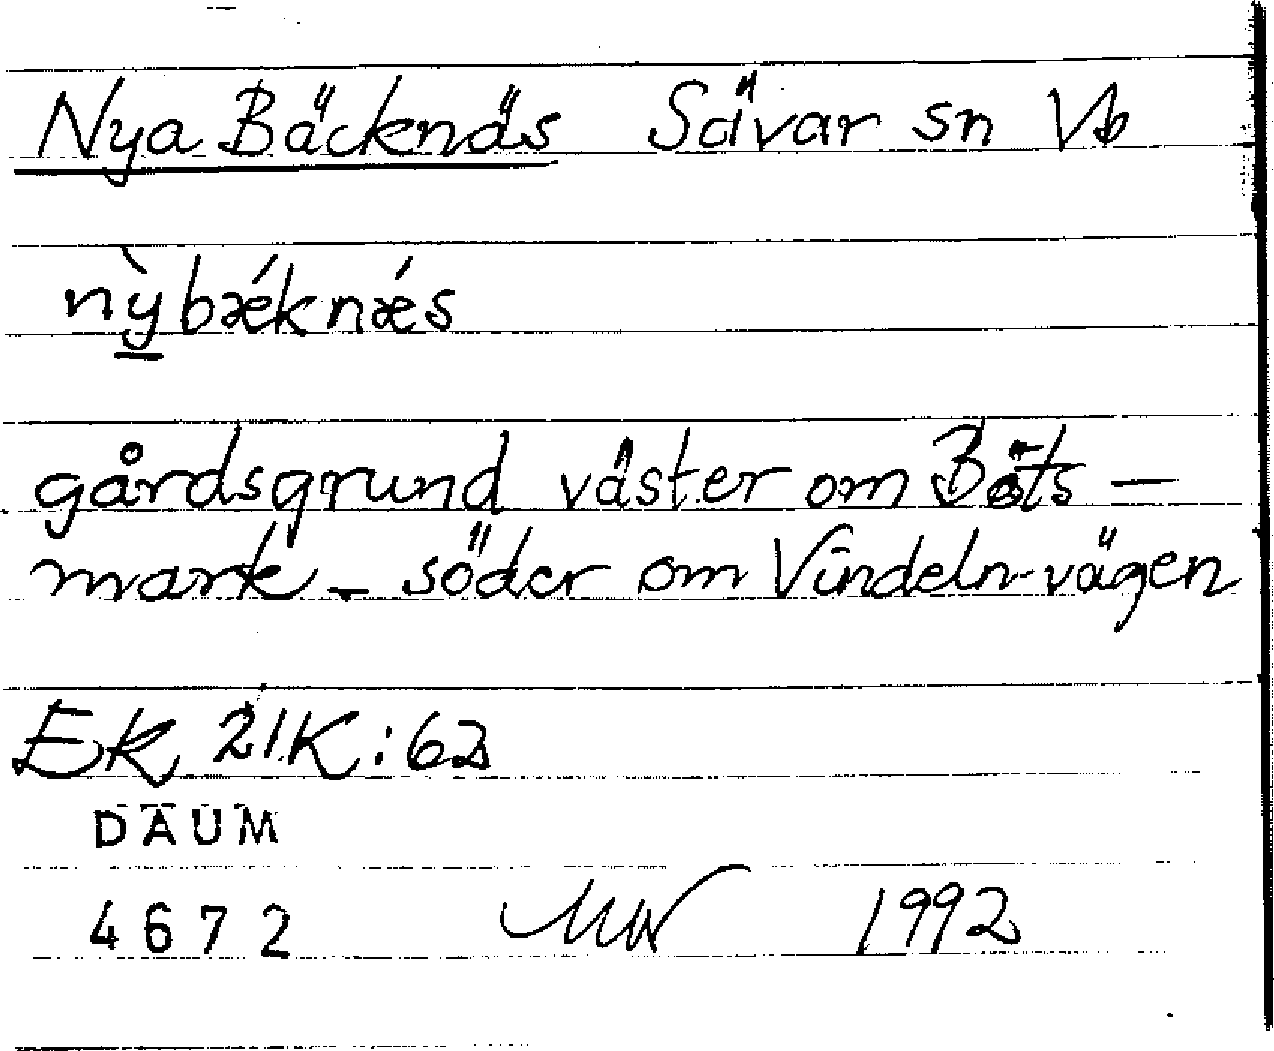 Nya Bäcknäs Sävar sn Vb
nỳbǽknǽs
gårdsgrund väster om Båts-
mark - söder om Vindeln-vägen
Ek 21K:6
DAUM
4672 1992